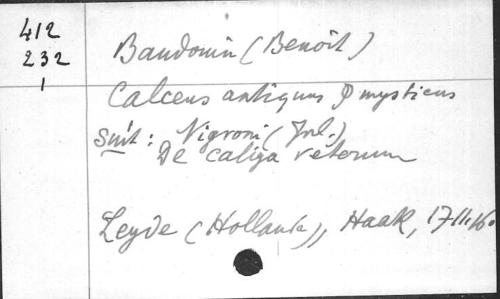 412
232
1
Baudouin (Benoît)
Calceus antiquus & mysticus
Suit : Nigroni (Jul.)
De caliga veterum
Leyde (Hollande), Haak, 1711.